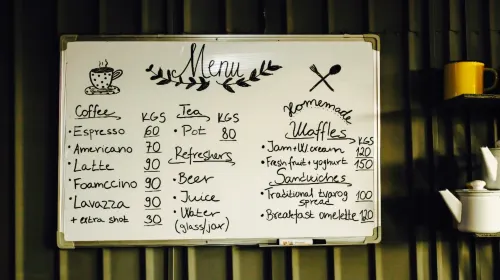 Menu
Coffee KGS
• Espresso 60
• Americano 70
• Latte 90
• Foamccino 90
• Lavazza 90
+ extra shot 30
Tea KGS
• Pot 80
Refreshers
• Beer
• Juice
• Water
(glass/jar)
homemade
Waffles KGS
• Jam+W cream 120
• Fresh fruit + yoghurt 150
Sandwiches
• Traditional tvarog 100
spread
• Breakfast omelette 120